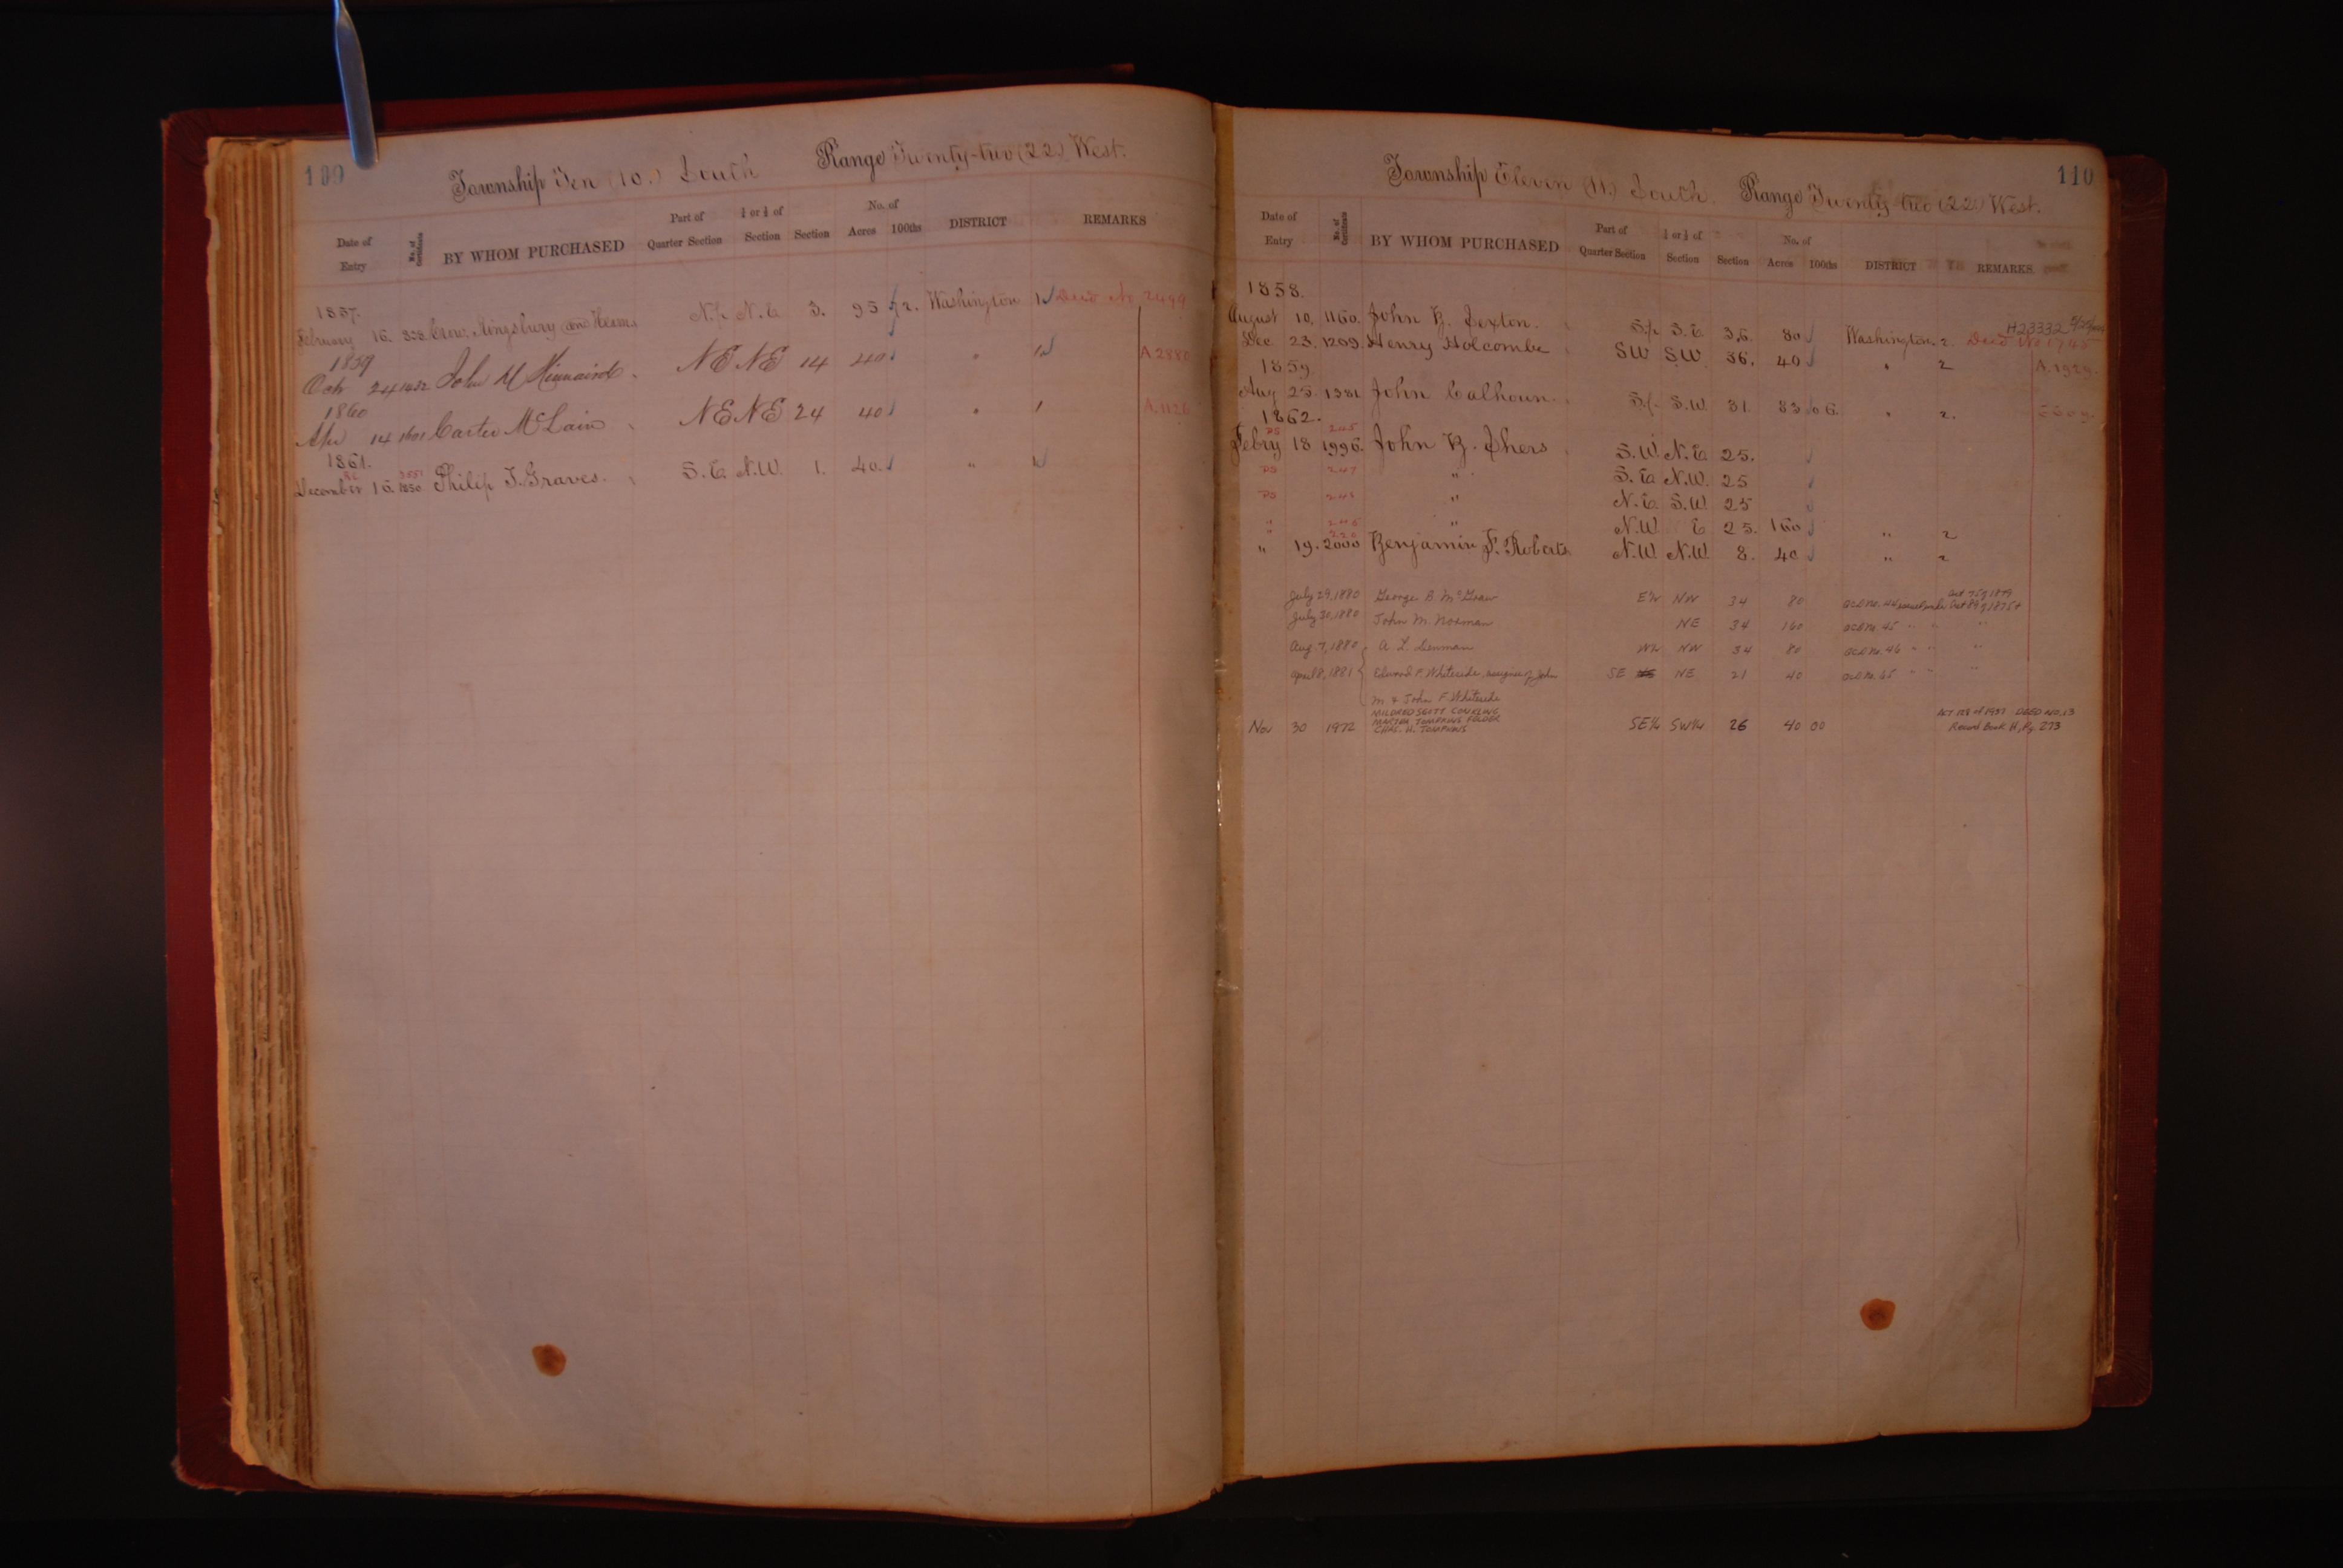 109
Township Ten (10.) South Range Twenty-two (22.) West.
Date of Entry No. of Certificate BY WHOM PURCHASED Part of Quarter Section ¼ or ½ of Section Section No. of Acres 100ths DISTRICT REMARKS
1857.
February 16. 828 Crow, Kingsbury and N. ½ N.E 3. 95 72. Washington 1 Deed No 2499
1859
Oct 24 1432 John M Kinnaird. NE NE 14 40 " 1 A 2880
1860
Apr 14 1601 Carter McLain NE NE 24 40 " 1 A. 1126
1861.
December 16. 1850 Philip T. Graves. S.E. N.W. 1. 40. " 1
110
Township Eleven (11.) South. Range Twenty-two (22.) West.
Date of Entry No. of Certificate BY WHOM PURCHASED Part of Quarter Section ¼ or ½ of Section Section No. of Acres 100ths DISTRICT REMARKS
1858.
H23332
August 10. 1160. John B. Sexton. S. ½ S.E 36. 80 Washington. 2. Deed No
Dec 23. 1209. Henry Holcombe SW S.W 36. 40 " 2 A. 1929.
1859.
Aug 25. 1381 John Calhoun. S. ½ S.W. 31. 83 06. " 2.
1862.
PS 245
Febry 18 1996. John B. S.W. N.E 25.
PS 247 " S.E N.W. 25
PS " N.E. S.W. 25
" " N.W E 25. 160 " 2
" 19. 2000 Benjamin F. Roberts N.W. N.W. 8. 40 " 2
July 29, 1880 George B. McGraw E½ NW 34 80 No. 44 issued under Act 89 of 1875 +
July 30, 1880 John M. Norman NE 34 160 No. 45 " " "
Aug. 7, 1880 A. L. Denman W½ NW 34 80 No. 46 " " "
April 8, 1881 Edward F. Whiteside, assignee of John SE NE 21 40 No. 65 " "
M & John F. Whiteside
MILDRED SCOTT CONKLING
MARTHA TOMPKINS FELDER
Nov 30 1972 CHAS. H. TOMPKINS SE¼ SW¼ 26 40 00 DEED NO. 13
Record Book H, Pg. 273